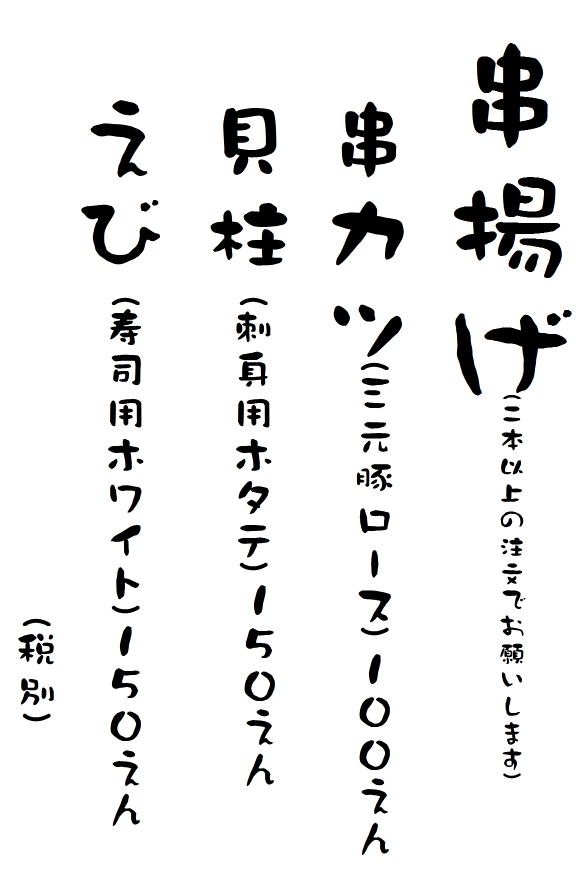 串揚げ(二本以上の注文でお願いします)
串カツ(三元豚ロース)100えん
貝柱(刺身用ホタテ)150えん
えび(寿司用ホワイト)150えん
(税別)